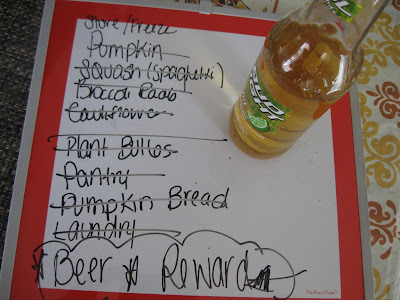 Store/Freeze
Pumpkin
Squash (Spaghetti)
Broccoli Raab
Cauliflower
Plant Bulbs
Pantry
Pumpkin Bread
Laundry
Beer Reward
BUD
LIGHT
LIME